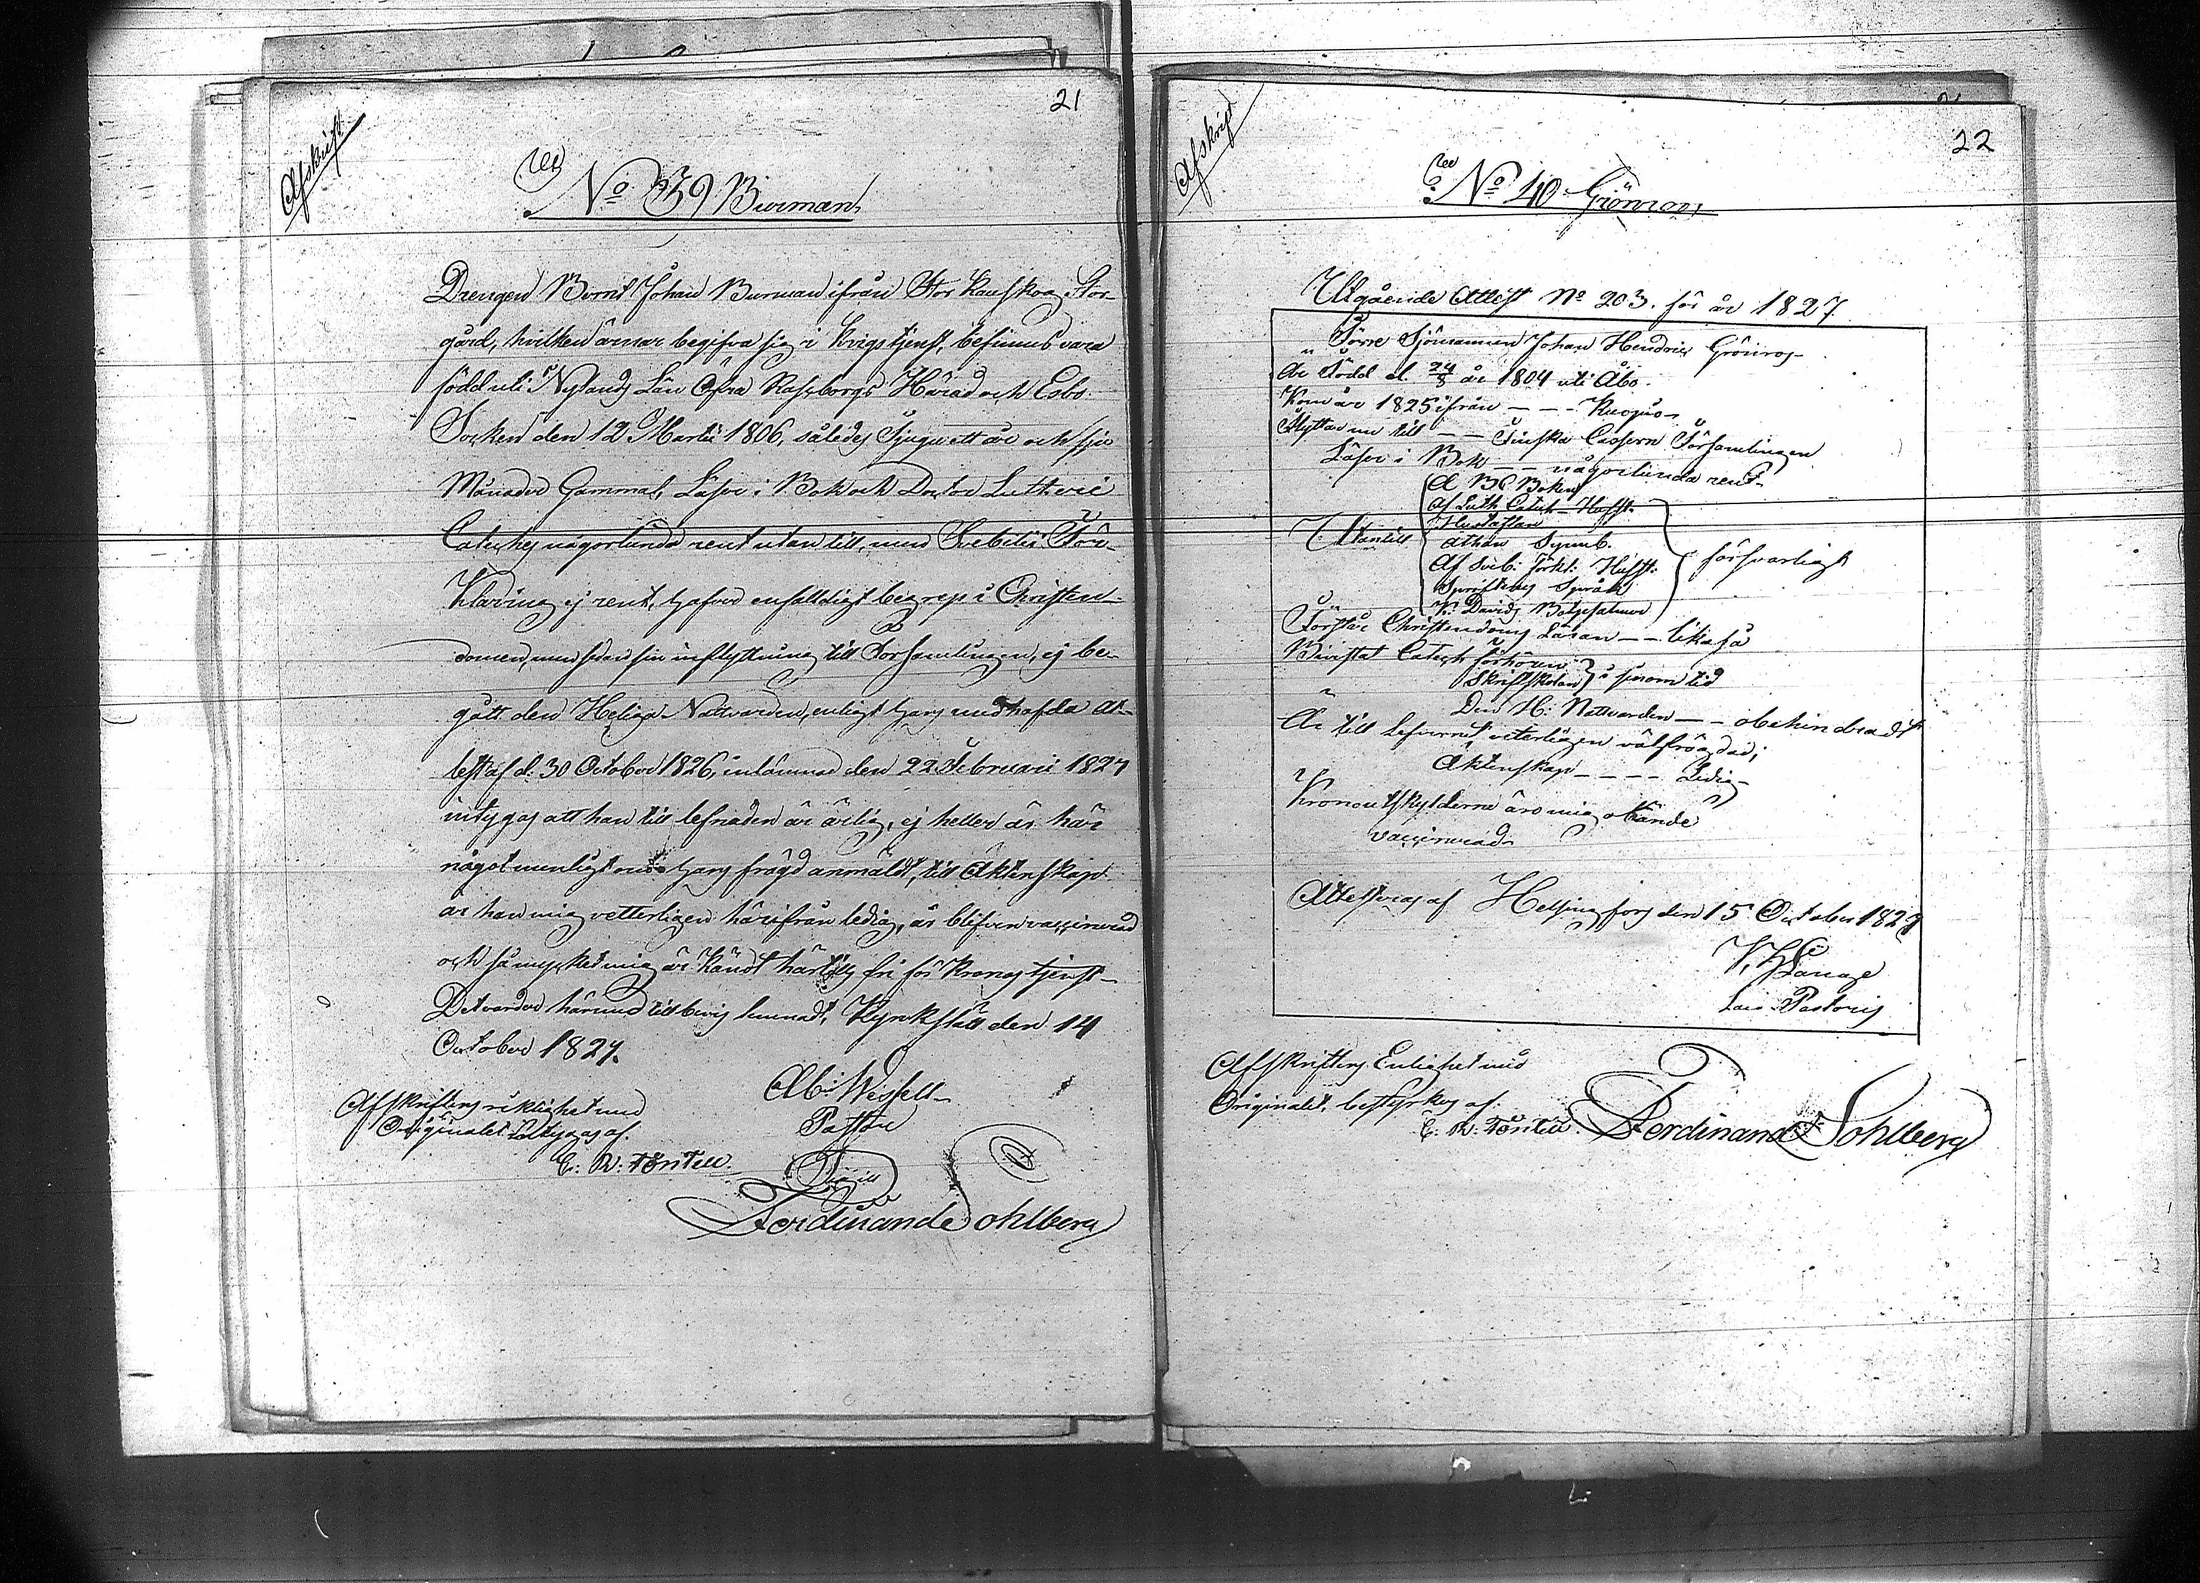 21
Afskrift
No 39 Burman
Drengen Bernt Johan Burman ifrån Stor Kanskog Stor-
gård, hvilken ärnar begifva sig i Krigstjenst, befinnes vara
född uti Nylands Län Öfra Raseborgs Härad och Esbo
Socken den 12 Martii 1806, således Tjuguett år och sju
Månader Gammal, Läser i Bok och Doctor Lutheri
Cateches någorlunda rent utan till, men Svebelii För-
klaring ej rent, hafver enfaldigt begrep i Christen-
domen, men sedan sin inflyttning till Församlingen, ej be-
gått den Heliga Nattvarden, enligt hans medhafda At-
test af d. 30 October 1826, inlämnad den 22 Februarii 1827
intygas att han till lefnaden är ärlig, ej heller är här
något menligt om hans frägd anmäldt, till Äktenskap
är han mig vetterligen härifrån ledig, är blifven vaccinerad
och så mycket mig är kändt härtills fri för Krons tjenst
Detvarder härmed till bevis lemnadt, Kyrkslätt den 14
October 1827.
Ab: Wessell
Pastor
Afskriftens riktighet med
Originalet intygas af.
E. R: Törnten
Ferdinand Sohlberg
22
Afskrift
No 40 Grönroos
Utgående Attest No 203. för år 1827
Förre Sjömannen Johan Hendric Grönros
Är Född d. 24/8 år 1804 uti Åbo.
Kom år 1825 ifrån - - - Kuopio
Flyttar nu till - - Finska Cassern Församlingen
Läser i Bok - - någorlunda rent
Utantill
A B C Boken
Af Luth. Catech. Hufst:
Hustaflan
Athan Symb.
Af Sveb: Förkl: Hufst:
Skriftens Språk
K: Davids Botpsalmer
försvarligt
Förstår Christendoms Läran - - likaså
Bivistat Catech förhören
Skriftskolan
i sinom tid
Den H: Nattvarden - - obehindradt
Är till Lefvernet veterligen välfrägdad;
Äktenskap - - - - Ledig
Kronoutskylderna äro mig okände
vaccinerad
Attesteras af Helsingfors den 15 October 1827
Pastoris
Afskriftens Enlighet med
Originalet, bestyrkes af.
E: R: Törnten
Ferdinand Sohlberg